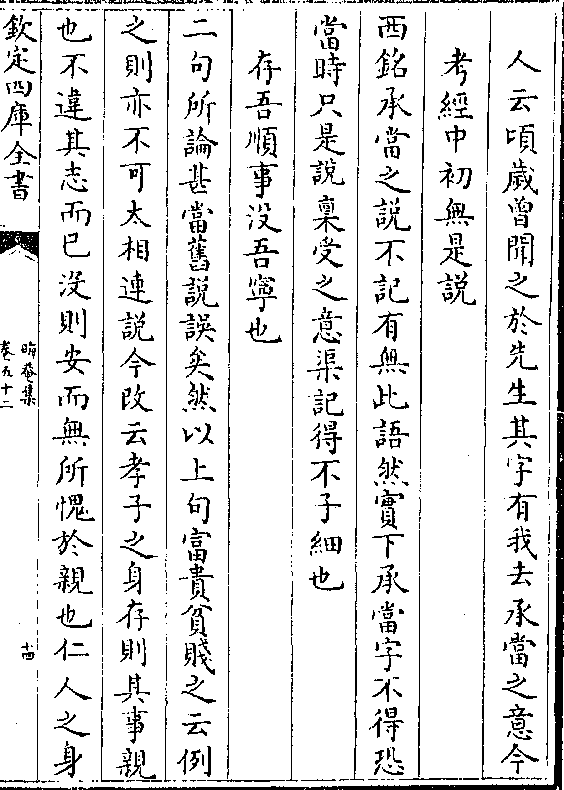 人云頃歲曽聞之於先生其字有我去承當之意今
考經中初無是説
西銘承當之説不記有無此語然實下承當字不得恐
當時只是説稟受之意渠記得不子細也
存吾順事没吾寧也
二句所論甚當舊説誤矣然以上句富貴貧賤之云例
之則亦不可太相連説今改云孝子之身存則其事親
也不違其志而已没則安而無所愧於親也仁人之身
欽定四庫全書
晦菴集
卷五十二
十四